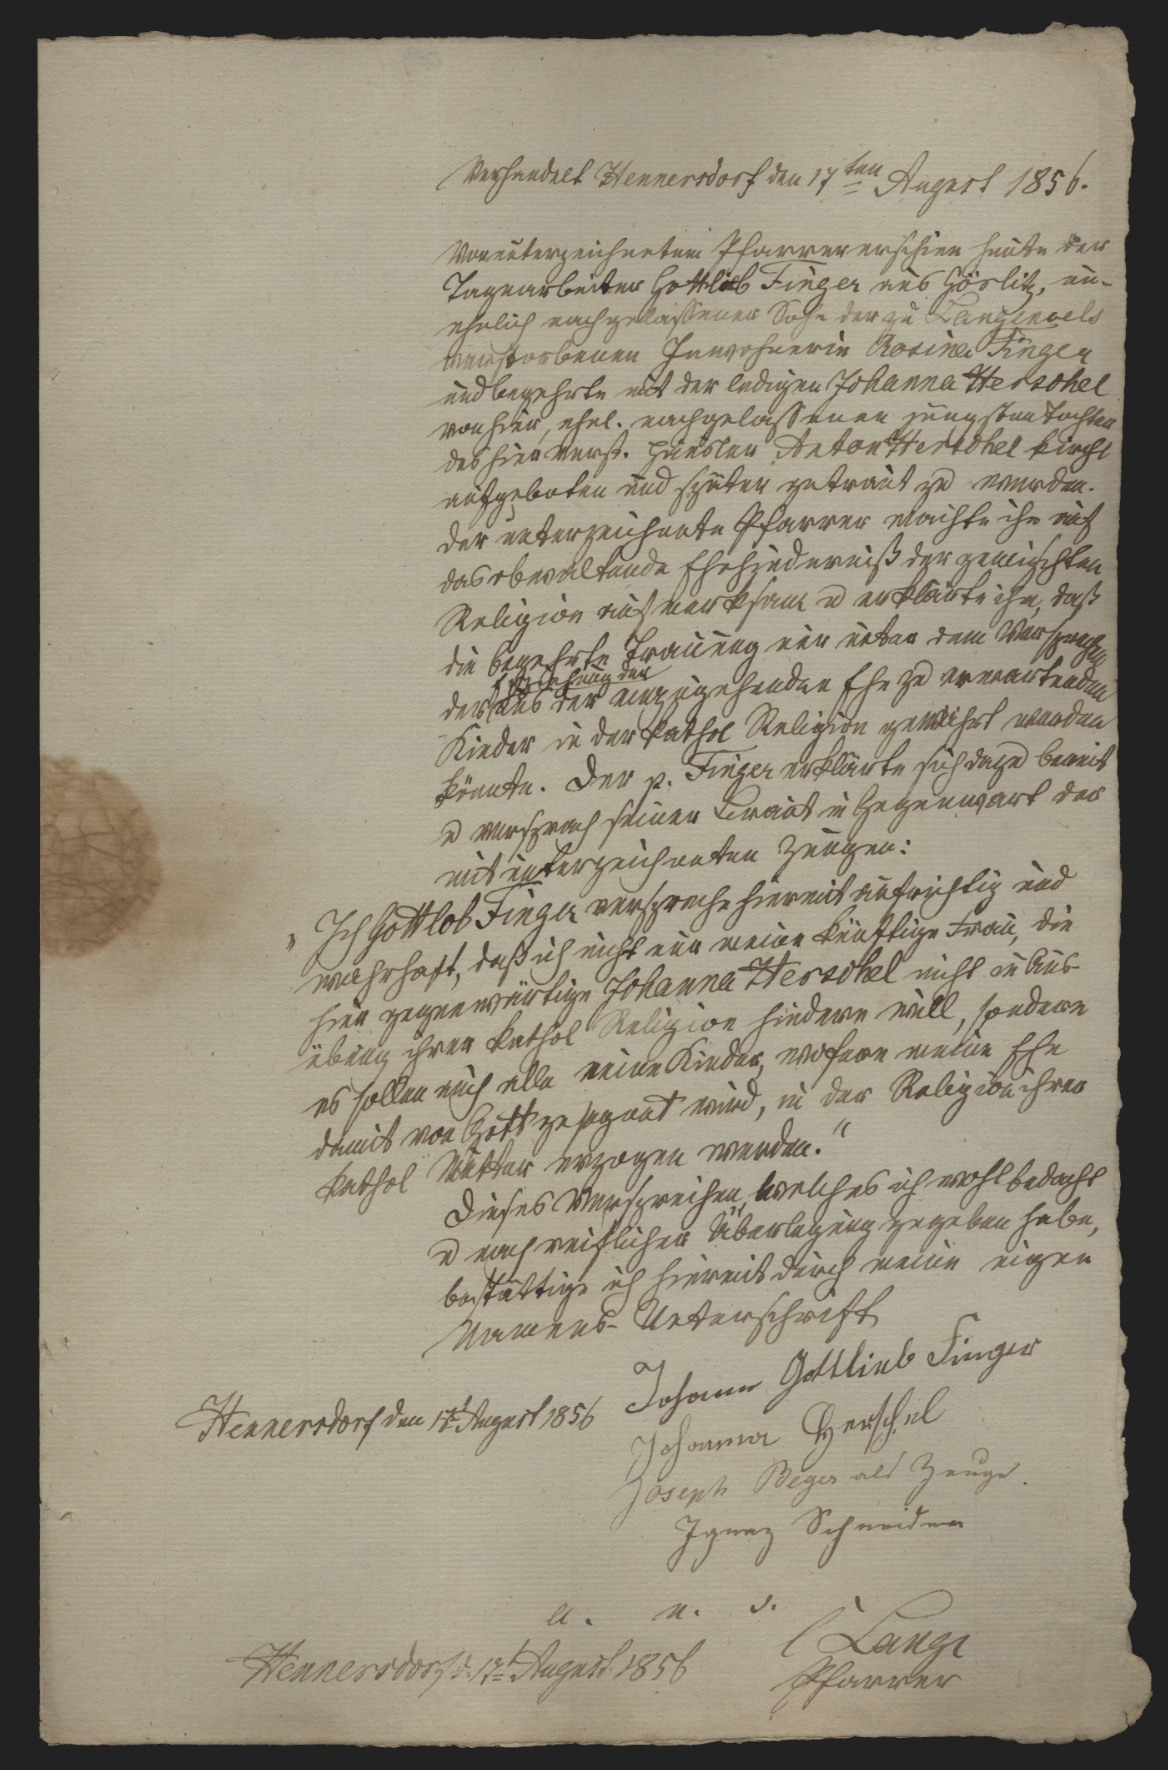 Verhandelt Hennersdorf den 17ten August 1856.
Vor unterzeichnetem Pfarrer erschien heute der
Tagearbeiter Gottlieb Finger aus Görlitz, un-
ehelich nachgelassener Sohn der zu Langenoels
verstorbenen Inwohnerin Rosina Finger
und begehrte mit der ledigen Johanna Herschel
von hier, ehel. nachgelassenen jüngsten Tochter
des hier verst. Häusler Anton Herschel kirchl
aufgeboten und später getraut zu werden.
Der unterzeichnete Pfarrer machte ihn auf
das obwaltende Ehehinderniß der gemischten
Religion aufmerksam u erklärte ihm, daß
die begehrte Trauung nur unter dem Versprechen
Erziehung der
der aus der einzugehenden Ehe zu erwartenden
Kinder in der kathol Religion gewährt werden
könnte. Der p. Finger erklärte sich dazu bereit
u versprach seiner Braut in Gegenwart der
mitunterzeichneten Zeugen:
„Ich Gottlob Finger verspreche hiermit aufrichtig und
wahrhaft, daß ich nicht nur meine künftige Frau, die
hier gegenwärtige Johanna Herschel nicht in Aus-
übung ihrer kathol Religion hindern will, sondern
es sollen auch alle meine Kinder, wofern meine Ehe
damit von Gott gesegnet wird, in der Religion ihrer
kathol Mutter erzogen werden."
Dieses Versprechen, welches ich wohlbedacht
u nach reiflicher Überlegung gegeben habe,
bestättige ich hiermit durch meine eigen
Namens-Unterschrift
Johann Gottlieb Finger
Hennersdorf den 17t August 1856
Johanna Herschel
Joseph Beger als Zeuge.
Ignaz Schneider
a. u. s.
Hennersdorf d. 17t August 1856
Lange
Pfarrer